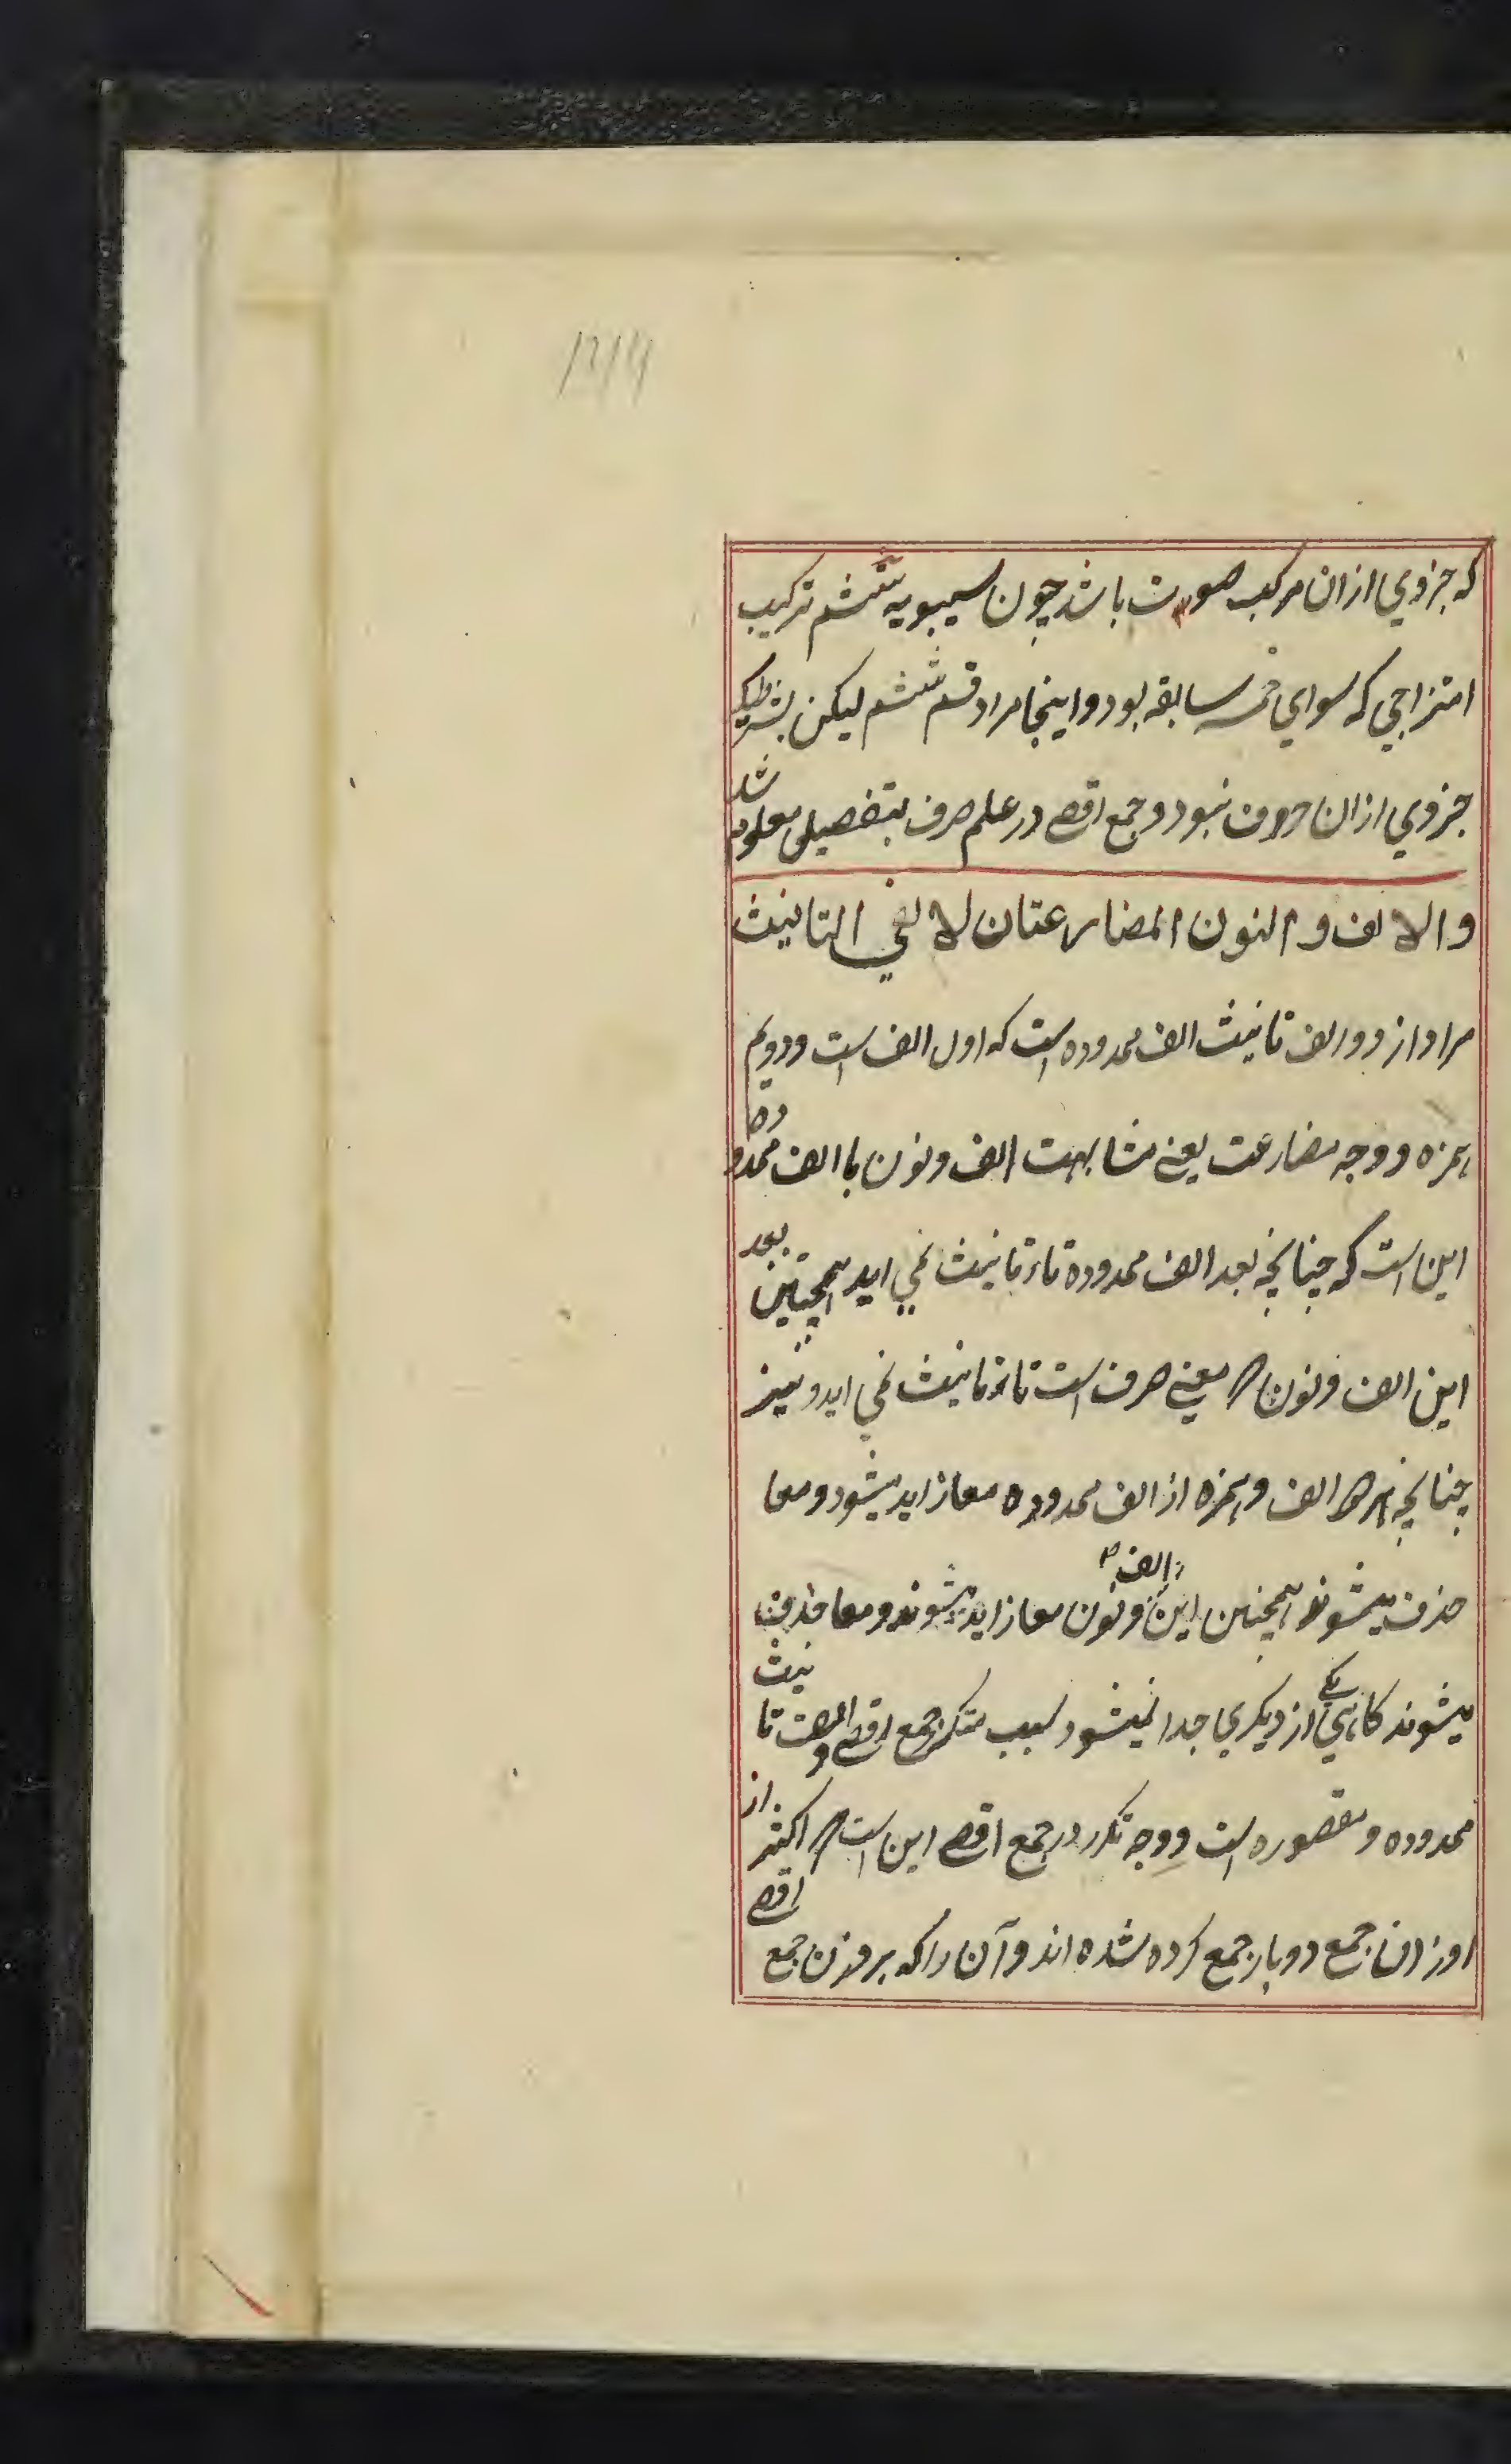 که جزوي ازان مرکب صوت باشد چون سيبويه ششم ترکيب
امتزاجي که سواي خمسه سابقه بود و اينجا مراد قسم ششم ليکن بشرطيکه
جزوي ازان حروف نبود و جمع اقصے در علم صرف بتفصيل معلوم شد
والالف والنون المضارعتان لالفي التانيث
مراد از دو الف تانيث الف ممدوده است که اول الف است و دويم
همزه و وجه مضارعت يعنے مشابهت الف و نون با الف ممدوده
اين است که چنانچه بعد الف ممدوده تاء تانيث نمي ايد همچنين بعد
اين الف و نون معني صرف است تاء تانيث نمي ايد و نيز
چنانچه هر الف و همزه از الف ممدوده معا زايد ميشود و معا
حذف ميشوند همچنين اين الف و نون معا زايد ميشوند و معا حذف
ميشوند کاهي يکے از ديکري جدا نميشود سبب متکرر جمع اقصے و الف تانيث
ممدوده و مقصوره است و وجه تکرر در جمع اقصے اين است اکثر از
اوزان جمع دو بار جمع کرده شده اند و آن را که بر وزن جمع اقصے